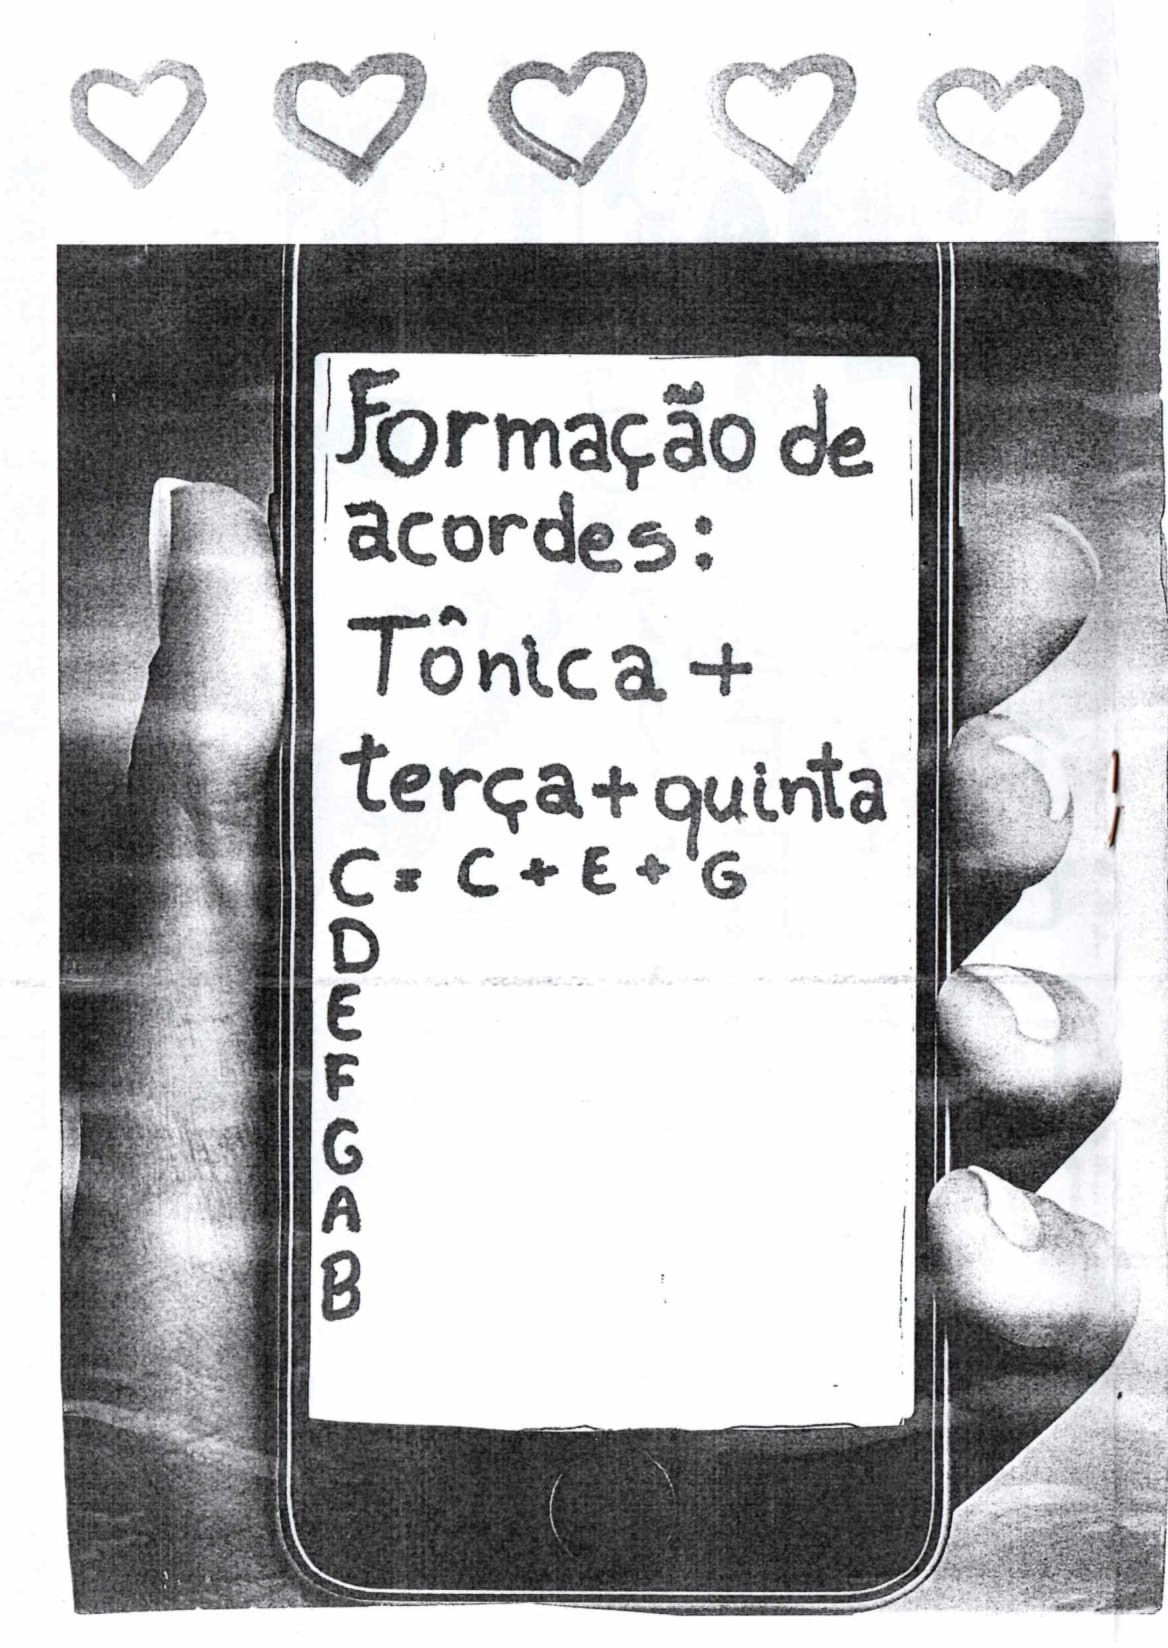 Formação de
acordes:
Tônica +
terça + quinta
C = C + E + G
D
E
F
G
A
B